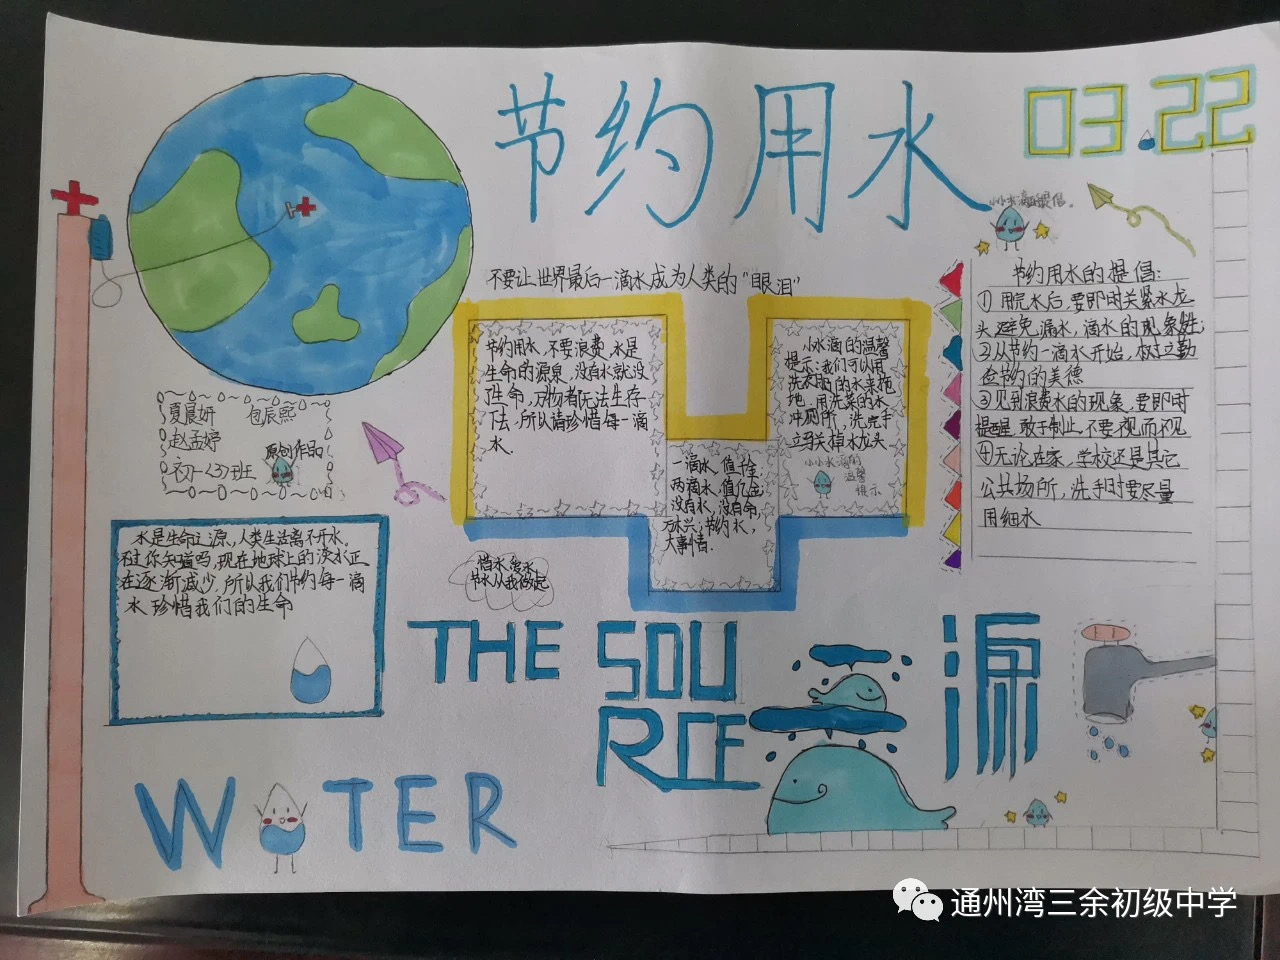 节约用水
03.22
小小水滴的提倡。
不要让世界最后一滴水成为人类的“眼泪”
节约用水的提倡:
① 用完水后,要即时关紧水龙
头,避免漏水,滴水的现象
②从节约一滴水开始,树立勤
俭节约的美德
③见到浪费水的现象,要即时
提醒,敢于制止,不要视而不见
④无论在家,学校还是其它
公共场所,洗手时要尽量
用细水
节约用水,不要浪费,水是
生命的源泉,没有水就没
生命,万物都无法生存
下去,所以请珍惜每一滴
水.
小水滴的温馨
提示:我们可以用
洗衣服的水来拖
地,用洗菜的水
冲厕所,洗完手
立马关掉水龙头
小小水滴的
温馨
提示
一滴水,值千金
两滴水,值亿金
没有水,没有命,
万水兴,节约水,
大事情.
夏晨妍 包辰熙
赵孟婷
原创作品
初一(3)班
水是生命之源,人类生活离不开水。
不过你知道吗,现在地球上的淡水正
在逐渐减少,所以我们节约每一滴
水,珍惜我们的生命
惜水 爱水
节水从我做起
THE SOU
RCE
源
WATER
通州湾三余初级中学